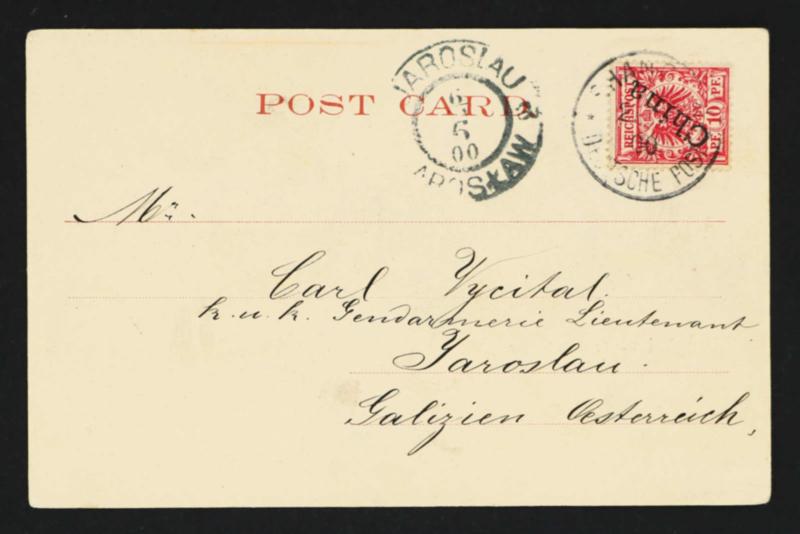 POST CARD
JAROSLAU 2
6
5
00
JAROSŁAW
SHAN
00
DEUTSCHE POST
REICHSPOST
10 PF.
China
Mr.
Carl Vycital.
k. u. k. Gendarmerie Lieutenant
Jaroslau.
Galizien Oesterreich,